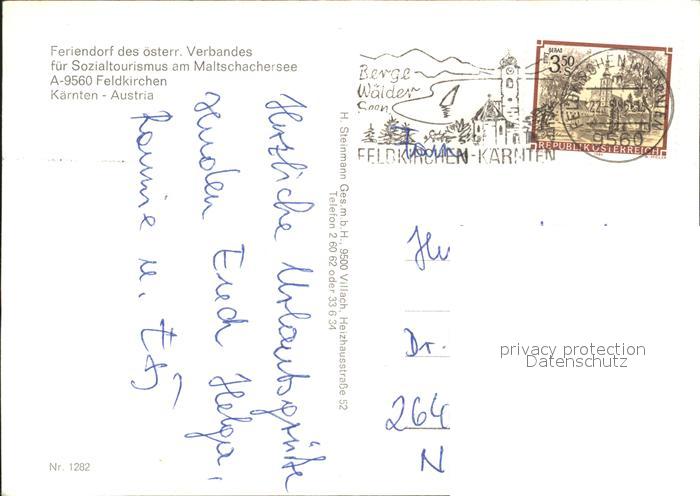 Feriendorf des österr. Verbandes
für Sozialtourismus am Maltschachersee
A-9560 Feldkirchen
Kärnten - Austria
Berge
Wälder
Seen
FELDKIRCHEN-KÄRNTEN
GERAS
3.50
S
REPUBLIK ÖSTERREICH
9560
Herzliche Urlaubsgrüße
senden Euch Helga,
H. Steinmann Ges.m.b.H., 9500 Villach, Heizhausstraße 52
Telefon 2 60 62 oder 33 6 34
Dr.
264
N
privacy protection
Datenschutz
Nr. 1282